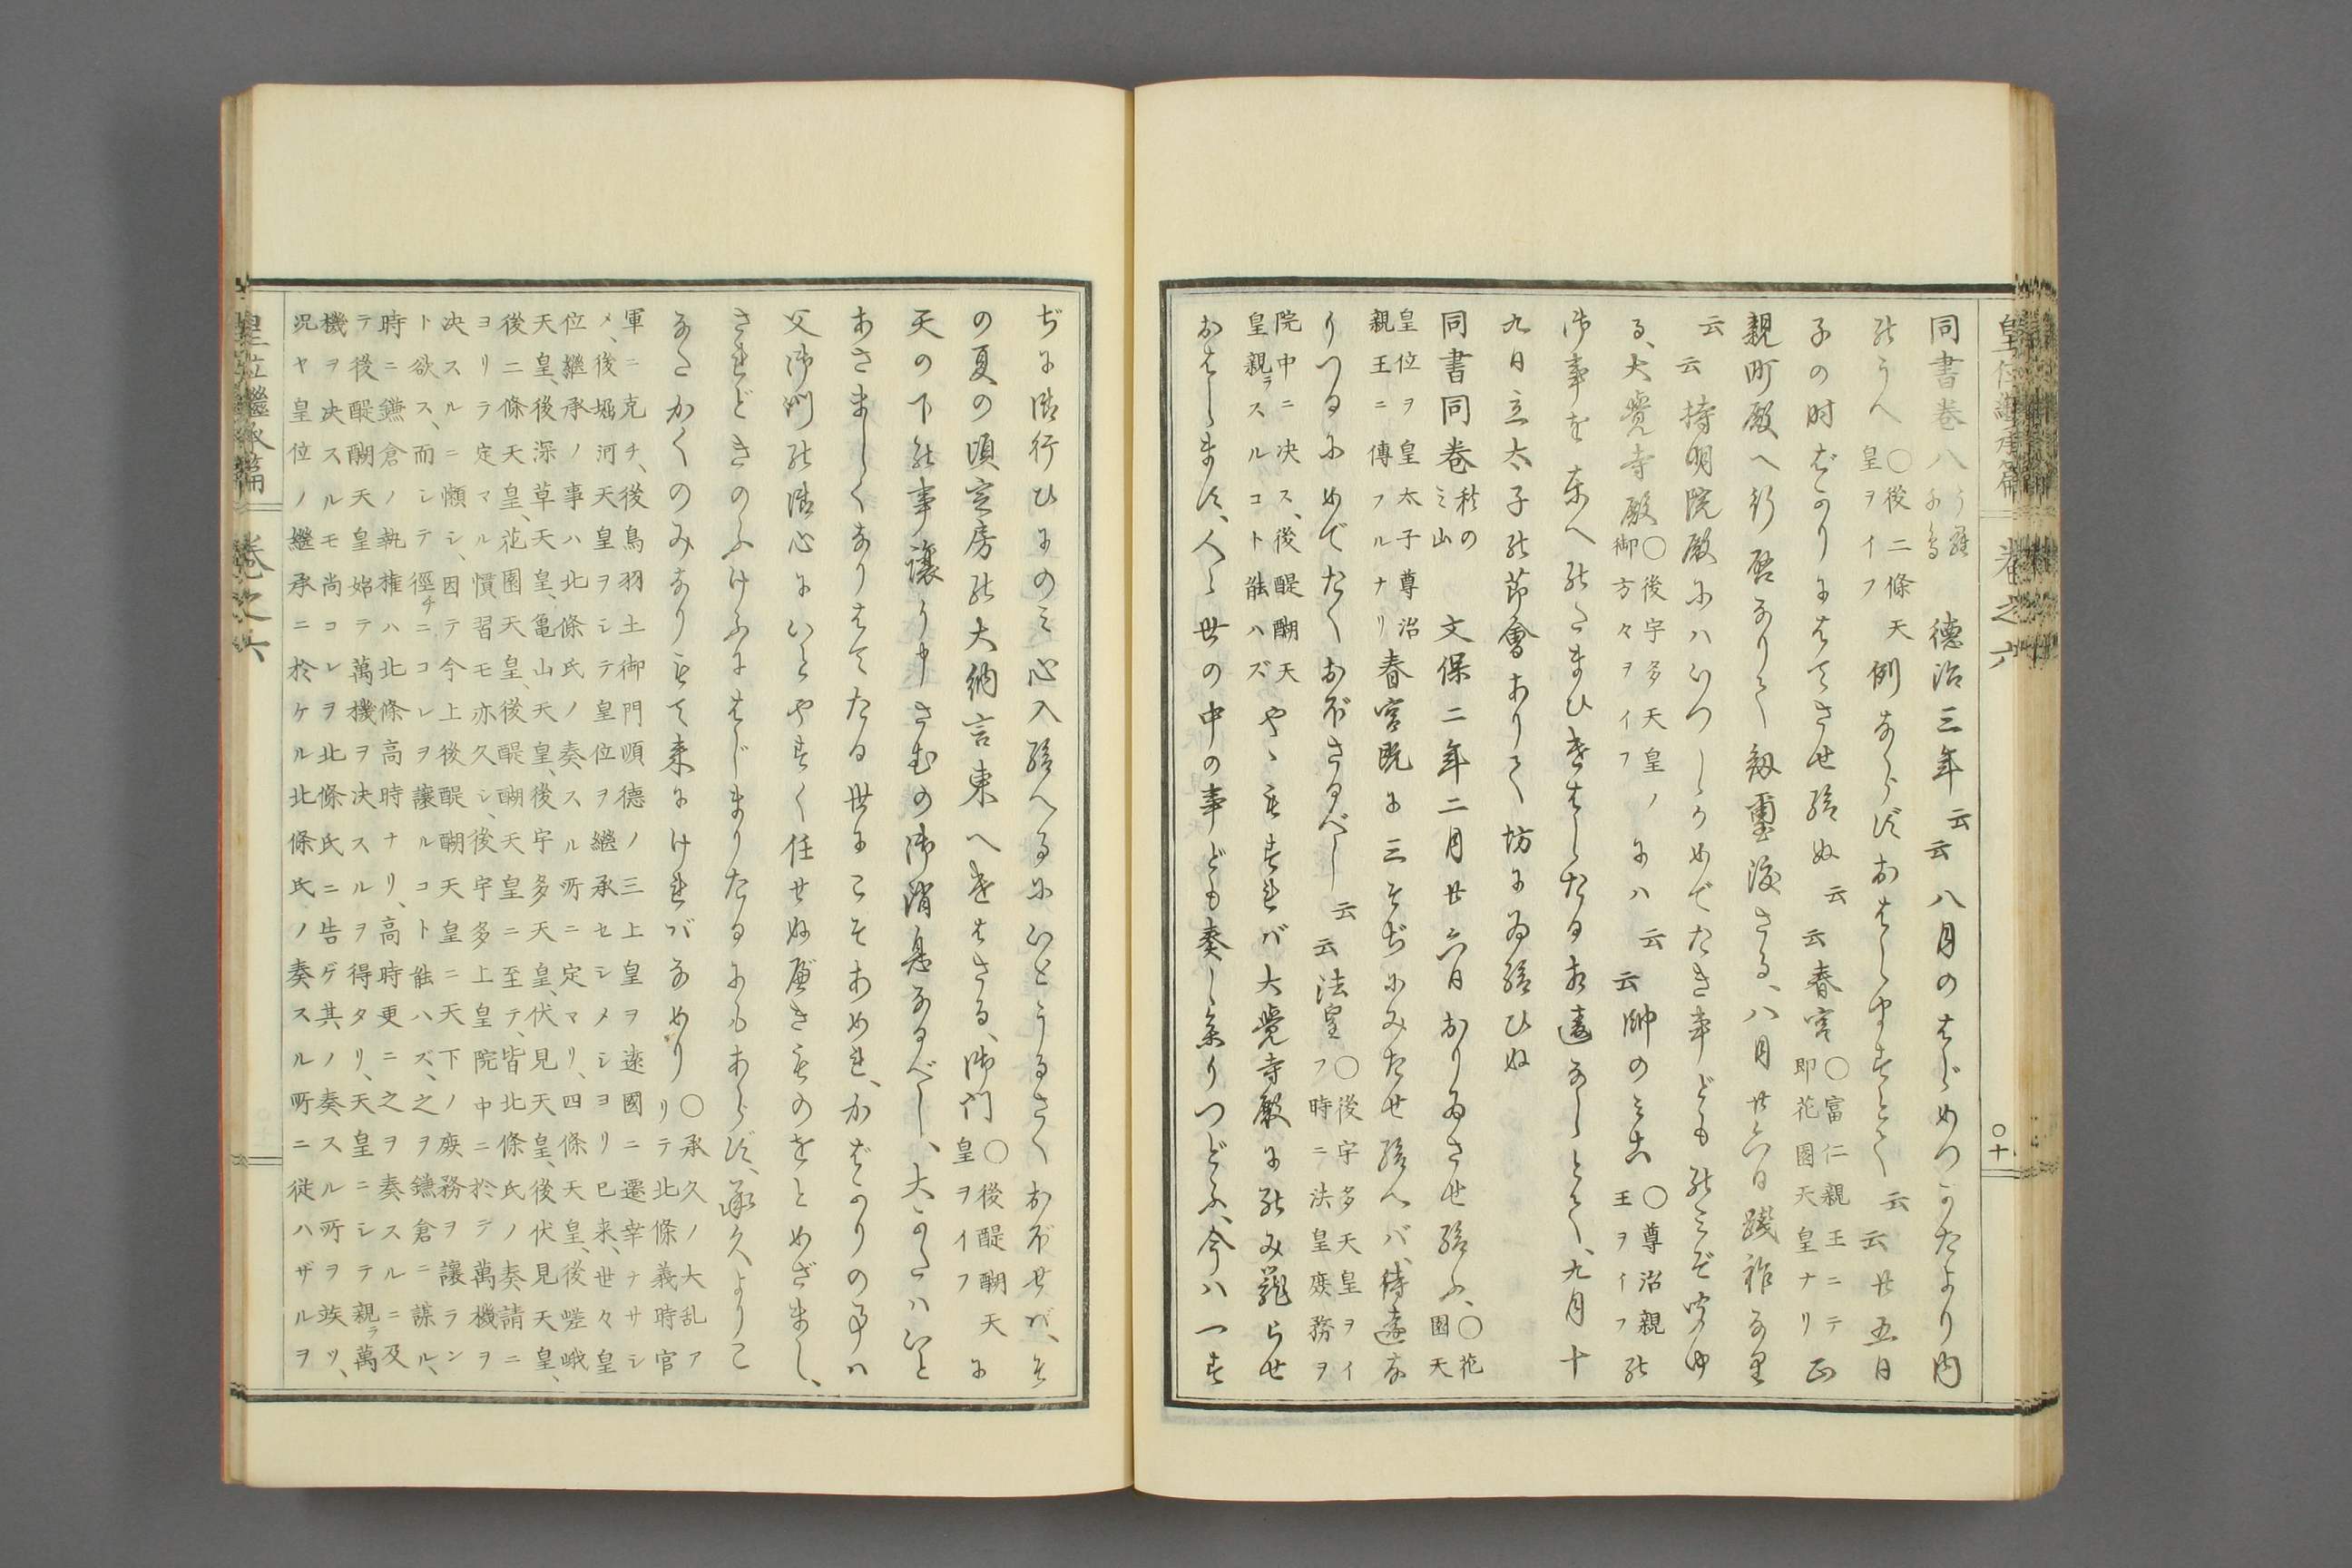 皇位繼承篇 卷之六 〇十
同書卷八 うら千鳥 德治三年云云八月のはじめつかたより内
のうへ〇後二條天皇ヲイフ例ならずおはしますとて云云廿五日
子の時ばかりにはてさせ給ぬ云云春宮〇富仁親王ニテ即花園天皇ナリ正
親町殿へ行啓ありて、劔璽渡さる、八月廿六日踐祚なり
云云持明院殿にハいつしかめでたき事どものみぞ聞ゆ
る、大覺寺殿〇後宇多天皇ノ御方々ヲイフにハ云云帥のみこ〇尊治親王ヲイフの
御事を東へのたまひきはしたる相違なしとて、九月十
九日立太子の節會ありて坊にゐ給ひぬ
同書同卷 秋のみ山 文保二年二月廿六日おりゐさせ給ふ、〇花園天
皇位ヲ皇太子尊治親王ニ傳フルナリ春宮既に三そぢにみたせ給へバ、待遠な
りつるにめでたくおぼさるべし云云法皇〇後宇多天皇ヲイフ時ニ法皇庶務ヲ
院中ニ決ス、後醍醐天皇親ラスルコト能ハズやゝもすれバ大覺寺殿にのみ籠らせ
おはします、人々世の中の事ども奏し參りつどふ、今ハ一す
ぢに御行ひにのミ心入給へるにいとうるさくおぼせバ、そ
の夏の頃定房の大納言東へきはさる、御門〇後醍醐天皇ヲイフに
天の下の事讓り申さむの御消息なるべし、大かたハいと
あさましくなりはてたる世にこそあめれ、かばかりの事ハ
父御門の御心にいとやすく任せぬべきものをとめざまし、
されどきのふけふにはじまりたるにもあらず、承久よりこ
なたかくのみなりもて來にけれバなめり〇承久ノ大乱アリテ北條義時官
軍ニ克チ、後鳥羽土御門順德ノ三上皇ヲ遠國ニ遷幸ナサシ
メ、後堀河天皇ヲシテ皇位ヲ繼承セシメシヨリ已来、世々皇
位繼承ノ事ハ北條氏ノ奏スル所ニ定マリ、四條天皇、後嵯峨
天皇、後深草天皇、亀山天皇、後宇多天皇、伏見天皇、後伏見天皇、
後二條天皇、花園天皇、後醍醐天皇ニ至テ、皆北條氏ノ奏請ニ
ヨリテ定マル慣習モ亦久シ、後宇多上皇院中ニ於テ萬機ヲ
決スルニ懶シ、因テ今上後醍醐天皇ニ天下ノ庶務ヲ讓ラン
ト欲ス、而シテ徑チニコレヲ讓ルコト能ハズ、之ヲ鎌倉ニ謀ル、
時ニ鎌倉ノ執権ハ北條高時ナリ、高時更ニ之ヲ奏スルニ及
テ後醍醐天皇始テ萬機ヲ決スルヲ得タリ、天皇ニシテ親ラ萬
機ヲ決スルモ尚コレヲ北條氏ニ告ゲ其ノ奏スル所ヲ竢ツ、
况ヤ皇位ノ繼承ニ於ケル北條氏ノ奏スル所ニ従ハザルヲ
皇位繼承篇 卷之六